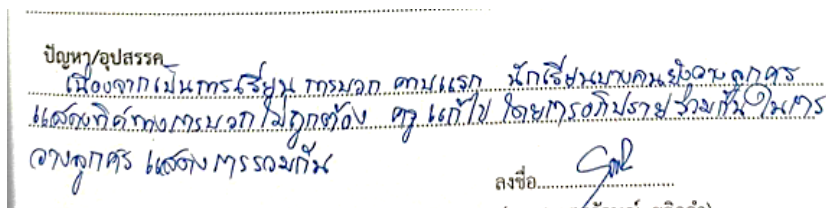 ปัญหา/อุปสรรค
เนื่องจากเป็นการเรียน การบวก คาบแรก นักเรียนบางคนยังวางลูกศร
แสดงทิศทางการบวกไม่ถูกต้อง ครู แก้ไข โดยการอภิปรายร่วมกัน ในการ
วางลูกศร แสดงการรวมกัน
ลงชื่อ